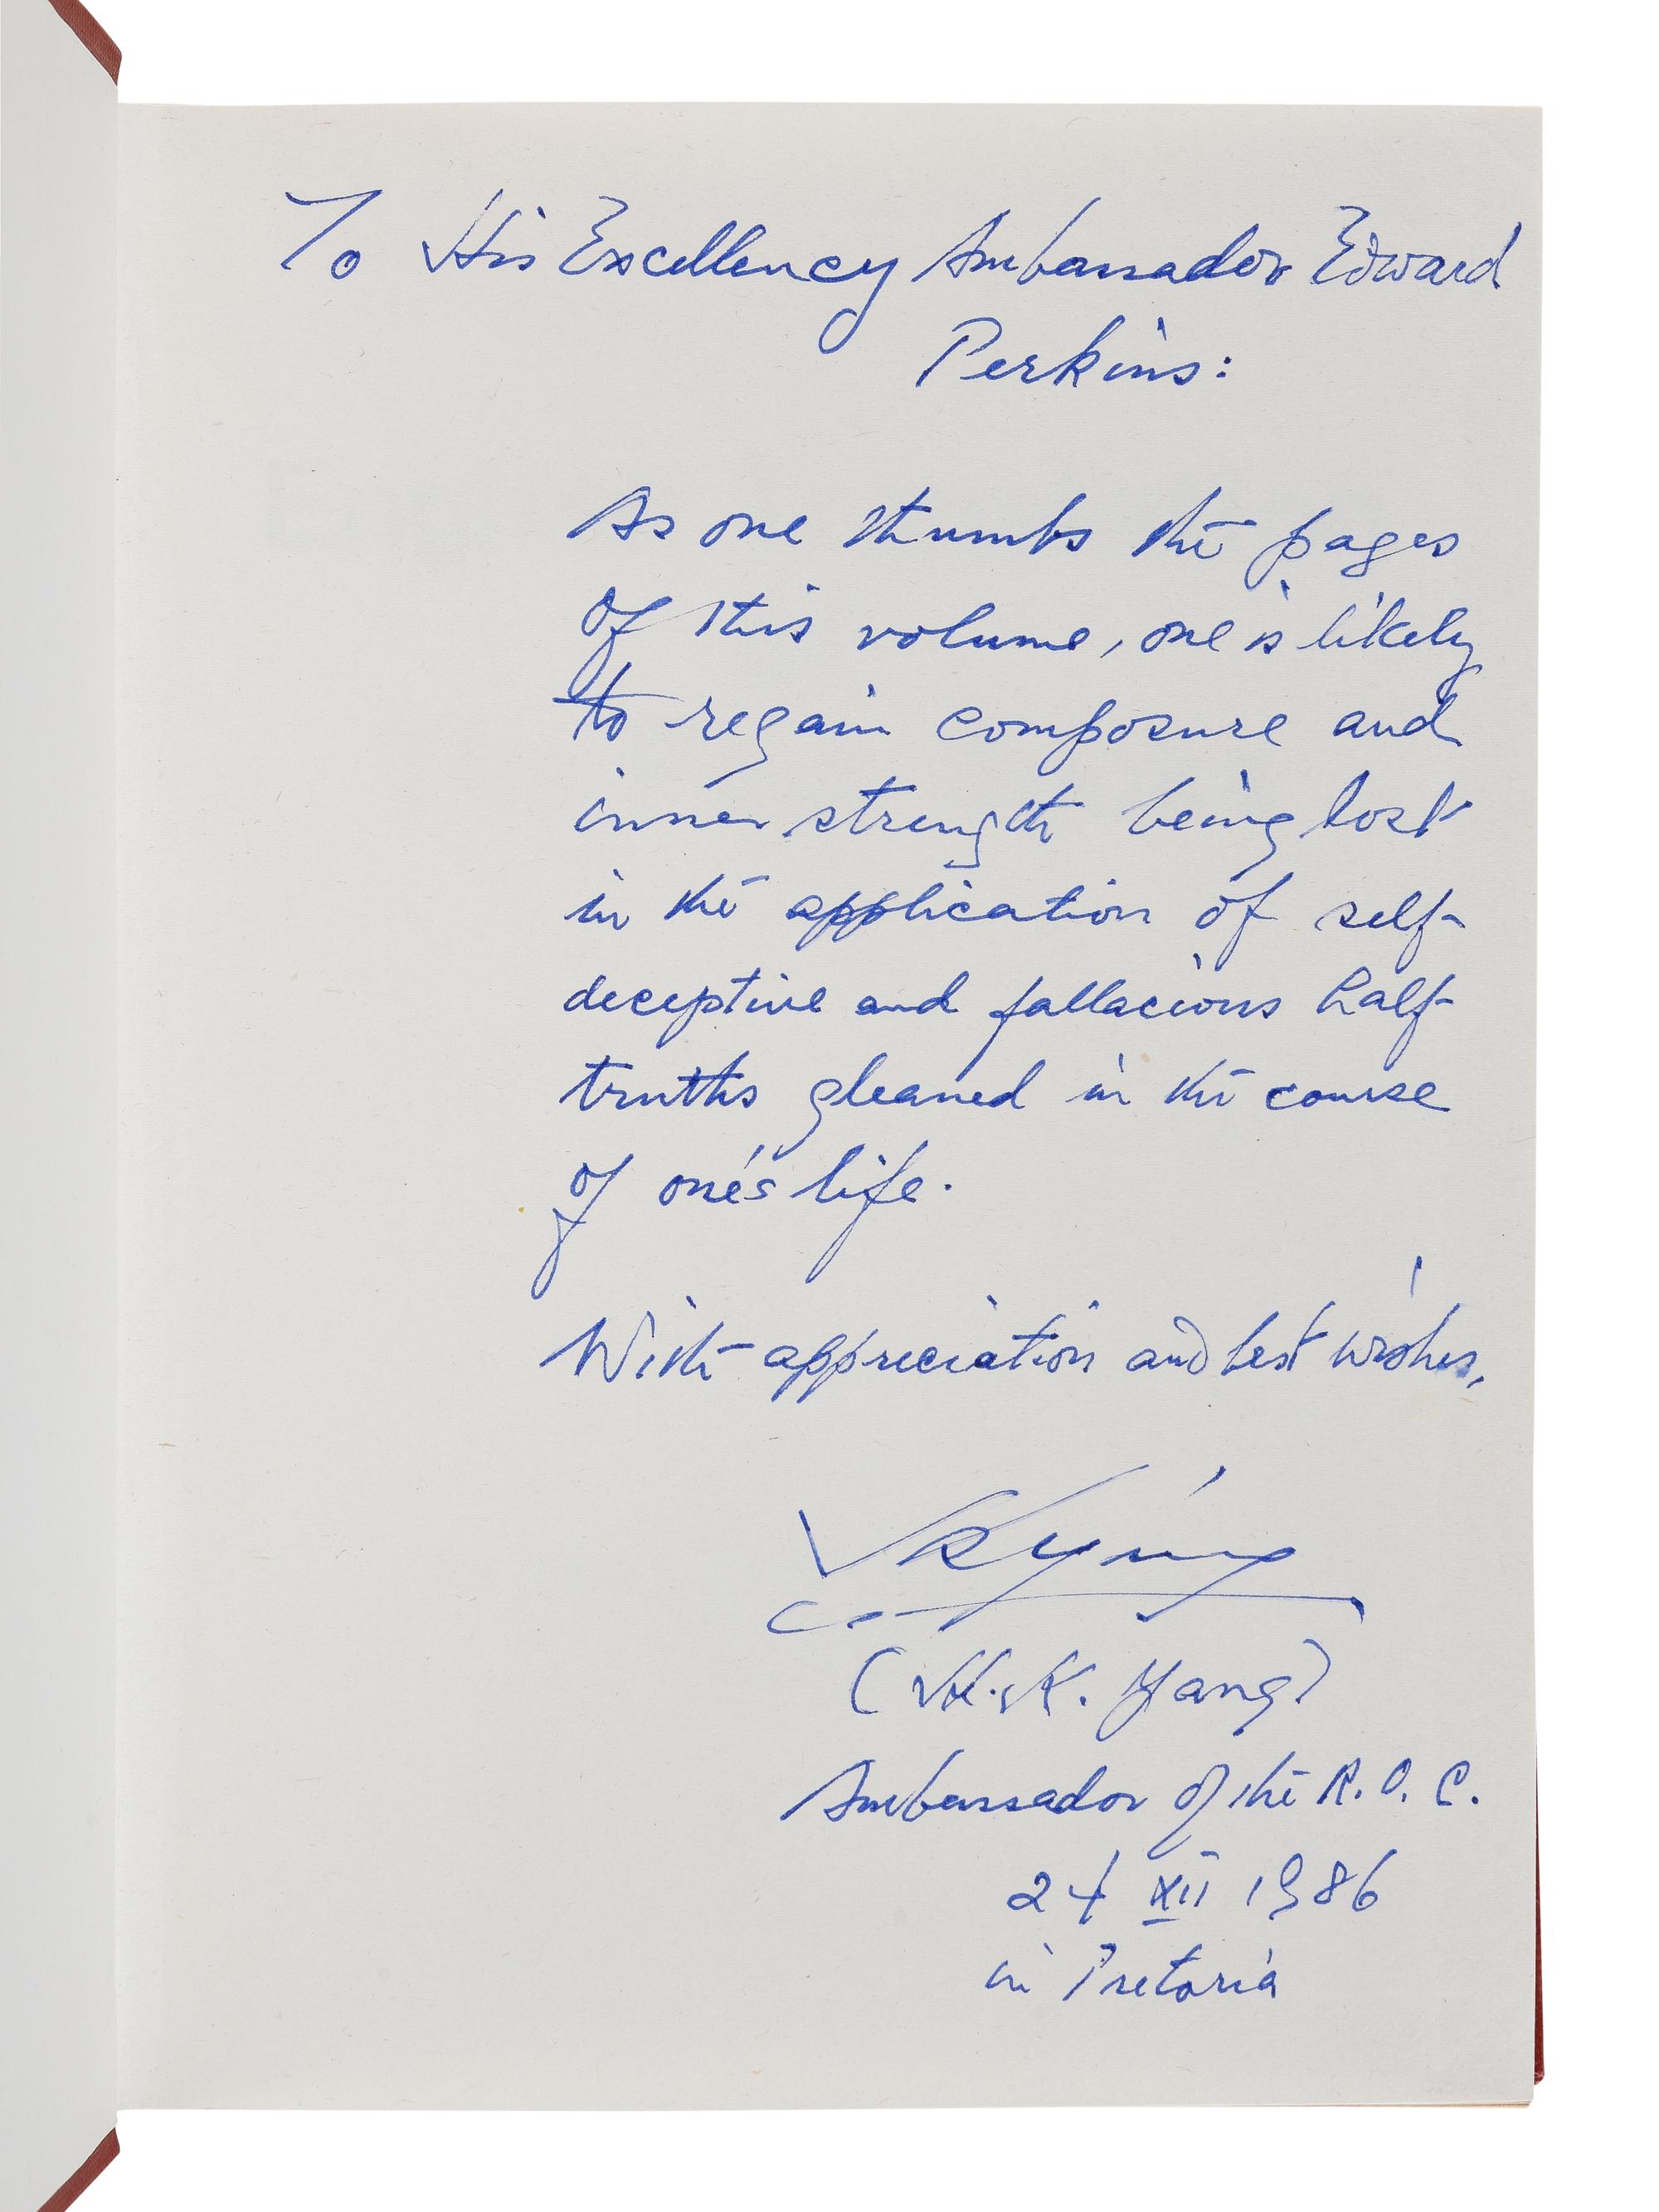 To His Excellency Ambassador Edward
Perkins:
As one thumbs the pages
of this volume, one is likely
to regain composure and
inner strength being lost
in the application of self-
deceptive and fallacious half-
truths gleaned in the course
of one's life.
With appreciation and best wishes,
(H. K. Yang)
Ambassador of the R. O. C.
24 XII 1986
in Pretoria